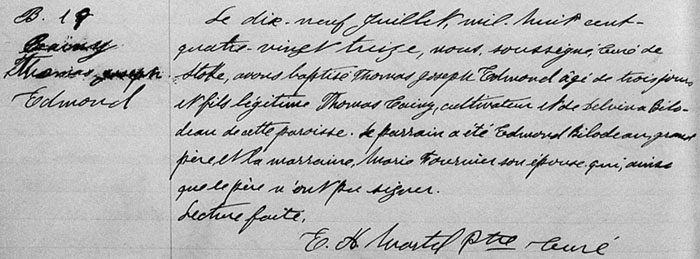 B. 18
Thomas Joseph
Edmond
Le dix-neuf Juillet, mil-huit cent-
quatre-vingt treize, nous, soussigné, Curé de
Stoke, avons baptisé Thomas Joseph Edmond âgé de trois jours
et fils légitime Thomas Cainy, cultivateur et de Delvina Bilo-
deau de cette paroisse. Le parrain a été Edmond Bilodeau, grand
père et la marraine, Marie Fournier son épouse qui, ainsi
que le père n'ont pu signer.
Lecture faite.
E. H. Martel Ptre Curé